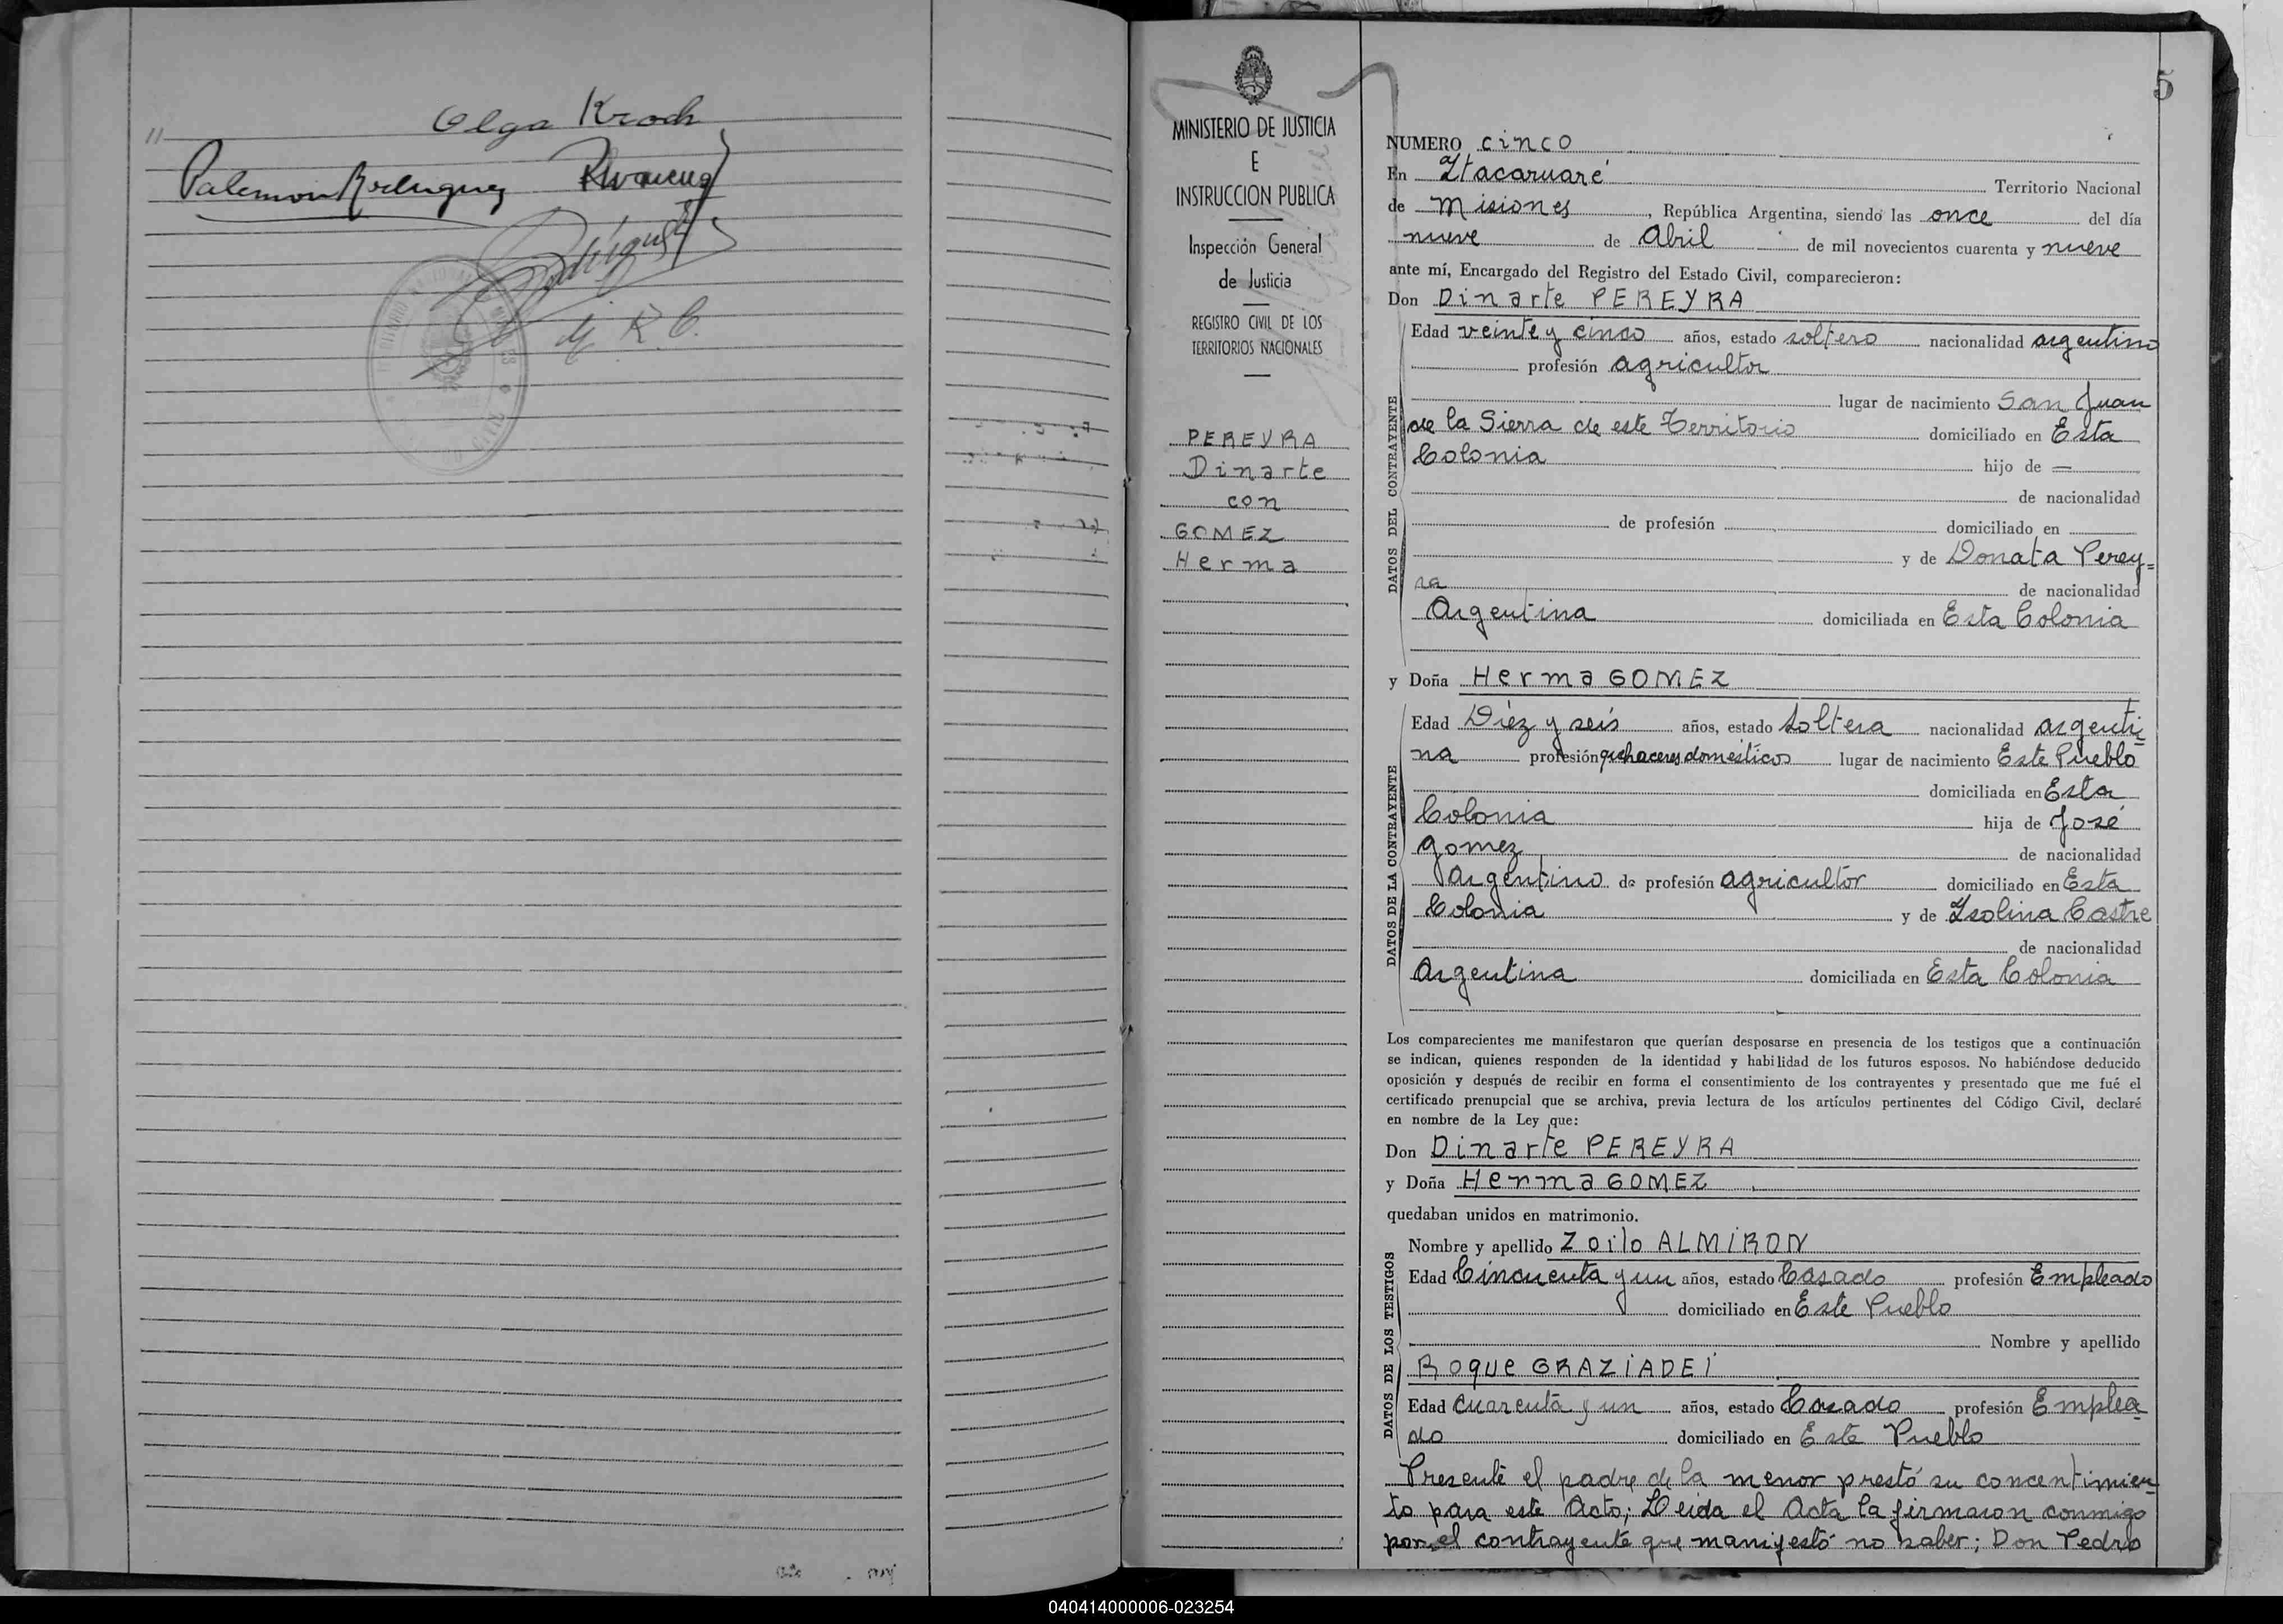 Olga Kroch
Palemon Rodriguez
E. R. C.
5
MINISTERIO DE JUSTICIA
E
INSTRUCCION PUBLICA
Inspección General
de Justicia
REGISTRO CIVIL DE LOS
TERRITORIOS NACIONALES
PEREYRA
Dinarte
con
GOMEZ
Herma
NUMERO cinco
En Itacaruaré Territorio Nacional
de Misiones, República Argentina, siendo las once del día
nueve de Abril de mil novecientos cuarenta y nueve
ante mí, Encargado del Registro del Estado Civil, comparecieron:
Don Dinarte PEREYRA
DATOS DEL CONTRAYENTE
Edad veinte y cinco años, estado soltero nacionalidad argentino
profesión agricultor
lugar de nacimiento San Juan
de la Sierra de este Territorio domiciliado en Esta
Colonia hijo de —
de nacionalidad
de profesión domiciliado en
y de Donata Perey=
ra de nacionalidad
Argentina domiciliada en Esta Colonia
y Doña Herma GOMEZ
DATOS DE LA CONTRAYENTE
Edad Diéz y seis años, estado Soltera nacionalidad argenti-
na profesión quehaceres domésticos lugar de nacimiento Este Pueblo
domiciliada en Esta
Colonia hija de José
Gomez de nacionalidad
Argentino de profesión agricultor domiciliado en Esta
Colonia y de Isolina Castre
de nacionalidad
Argentina domiciliada en Esta Colonia
Los comparecientes me manifestaron que querían desposarse en presencia de los testigos que a continuación
se indican, quienes responden de la identidad y habilidad de los futuros esposos. No habiéndose deducido
oposición y después de recibir en forma el consentimiento de los contrayentes y presentado que me fué el
certificado prenupcial que se archiva, previa lectura de los artículos pertinentes del Código Civil, declaré
en nombre de la Ley que:
Don Dinarte PEREYRA
y Doña Herma GOMEZ
quedaban unidos en matrimonio.
DATOS DE LOS TESTIGOS
Nombre y apellido Zoilo ALMIRON
Edad Cincuenta y un años, estado Casado profesión Empleado
domiciliado en Este Pueblo
Nombre y apellido
Roque GRAZIADEI
Edad Cuarenta y un años, estado Casado profesión Emplea-
do domiciliado en Este Pueblo
Presente el padre de la menor prestó su concentimien-
to para este Acto; Leida el Acta la firmaron conmigo
por el contrayente que manifestó no saber; Don Pedro
040414000006-023254